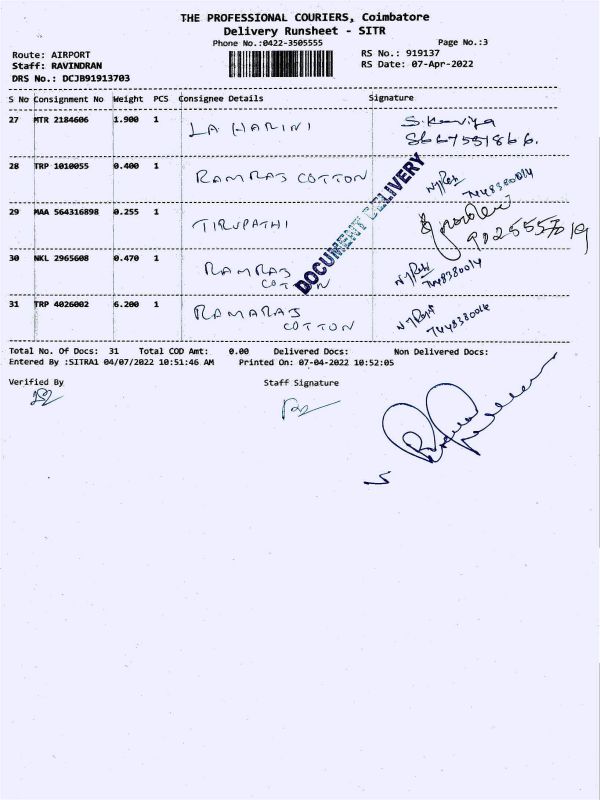 THE PROFESSIONAL COURIERS, Coimbatore
Delivery Runsheet - SITR
Phone No.:0422-3505555 Page No.:3
Route: AIRPORT RS No.: 919137
Staff: RAVINDRAN RS Date: 07-Apr-2022
DRS No.: DCJB91913703
S No Consignment No Weight PCS Consignee Details Signature
27 MTR 2184606 1.900 1 LA HARINI S.Kaviya
28 TRP 1010055 0.400 1 RAMRAJ COTTON
29 MAA 564316898 0.255 1 TIRUPATHI
30 NKL 2965608 0.470 1 RAMRAJ
COTTON
31 TRP 4026002 6.200 1 RAMARAJ
COTTON
DOCUMENT DELIVERY
Total No. Of Docs: 31 Total COD Amt: 0.00 Delivered Docs: Non Delivered Docs:
Entered By :SITRA1 04/07/2022 10:51:46 AM Printed On: 07-04-2022 10:52:05
Verified By Staff Signature